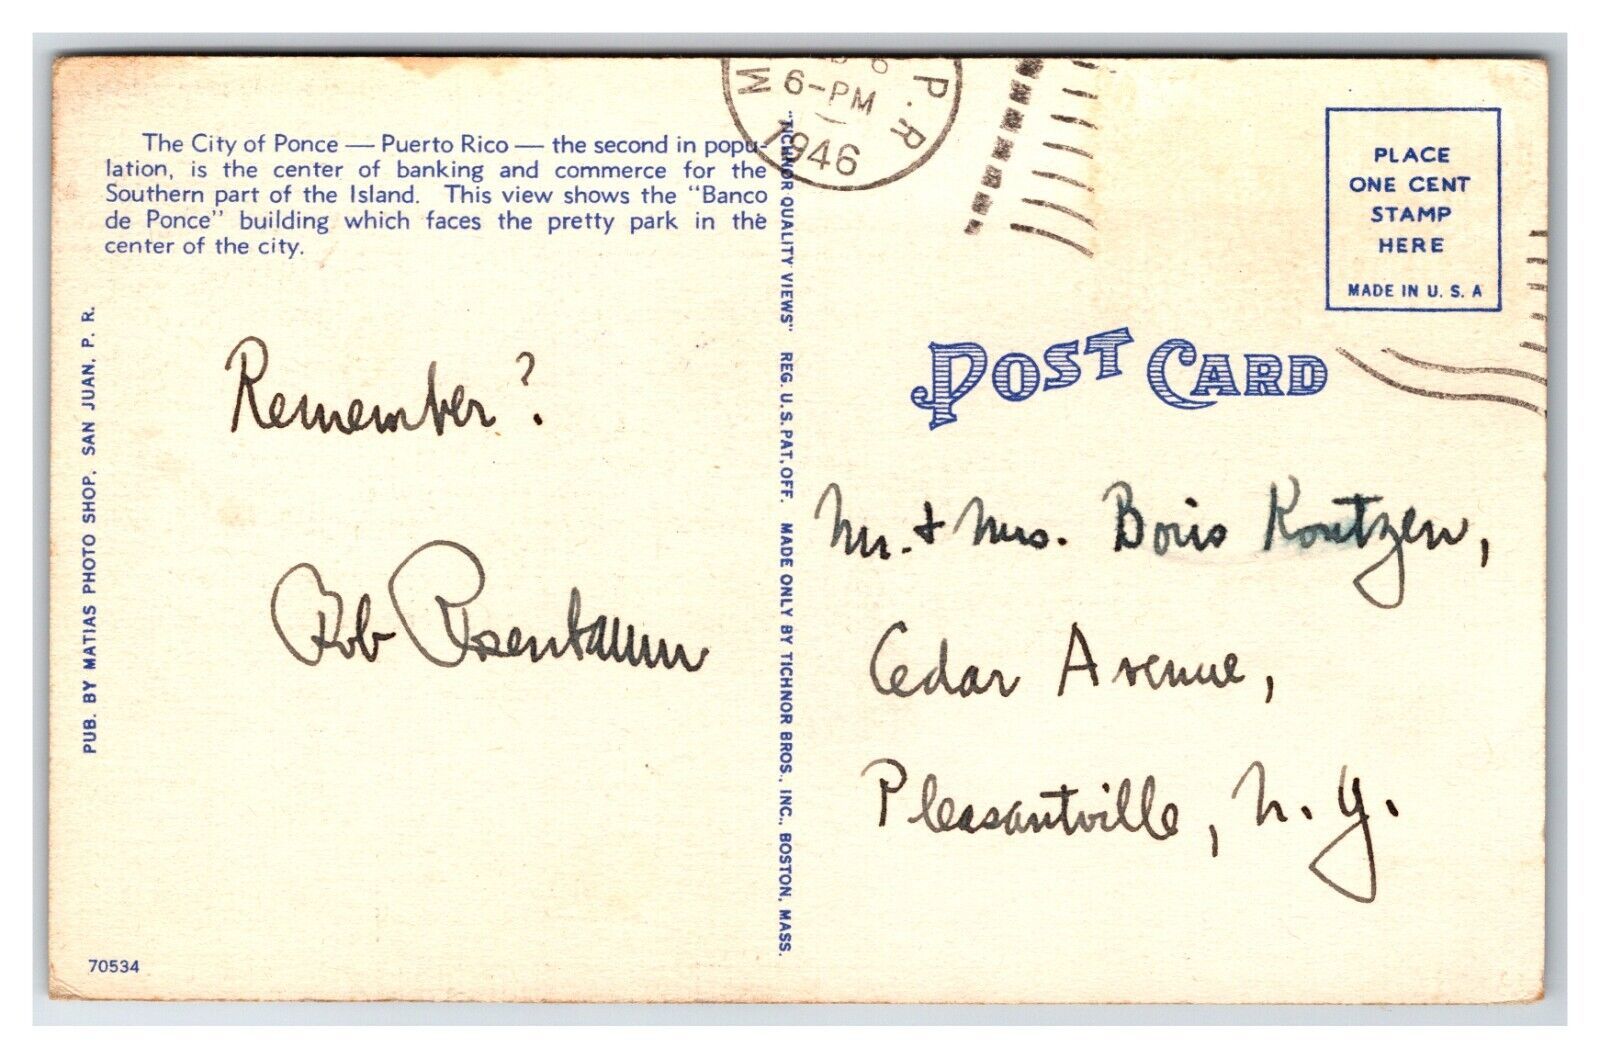 The City of Ponce — Puerto Rico — the second in popu-
lation, is the center of banking and commerce for the
Southern part of the Island. This view shows the "Banco
de Ponce" building which faces the pretty park in the
center of the city.
PUB. BY MATIAS PHOTO SHOP, SAN JUAN, P. R.
Remember?
Bob Rosenbaum
70534
"TICHNOR QUALITY VIEWS" REG. U. S. PAT. OFF. MADE ONLY BY TICHNOR BROS., INC., BOSTON, MASS.
M P.R
6-PM
1946
PLACE
ONE CENT
STAMP
HERE
MADE IN U. S. A
POST CARD
Mr. + Mrs. Boris Koutzen,
Cedar Avenue,
Pleasantville, N. Y.